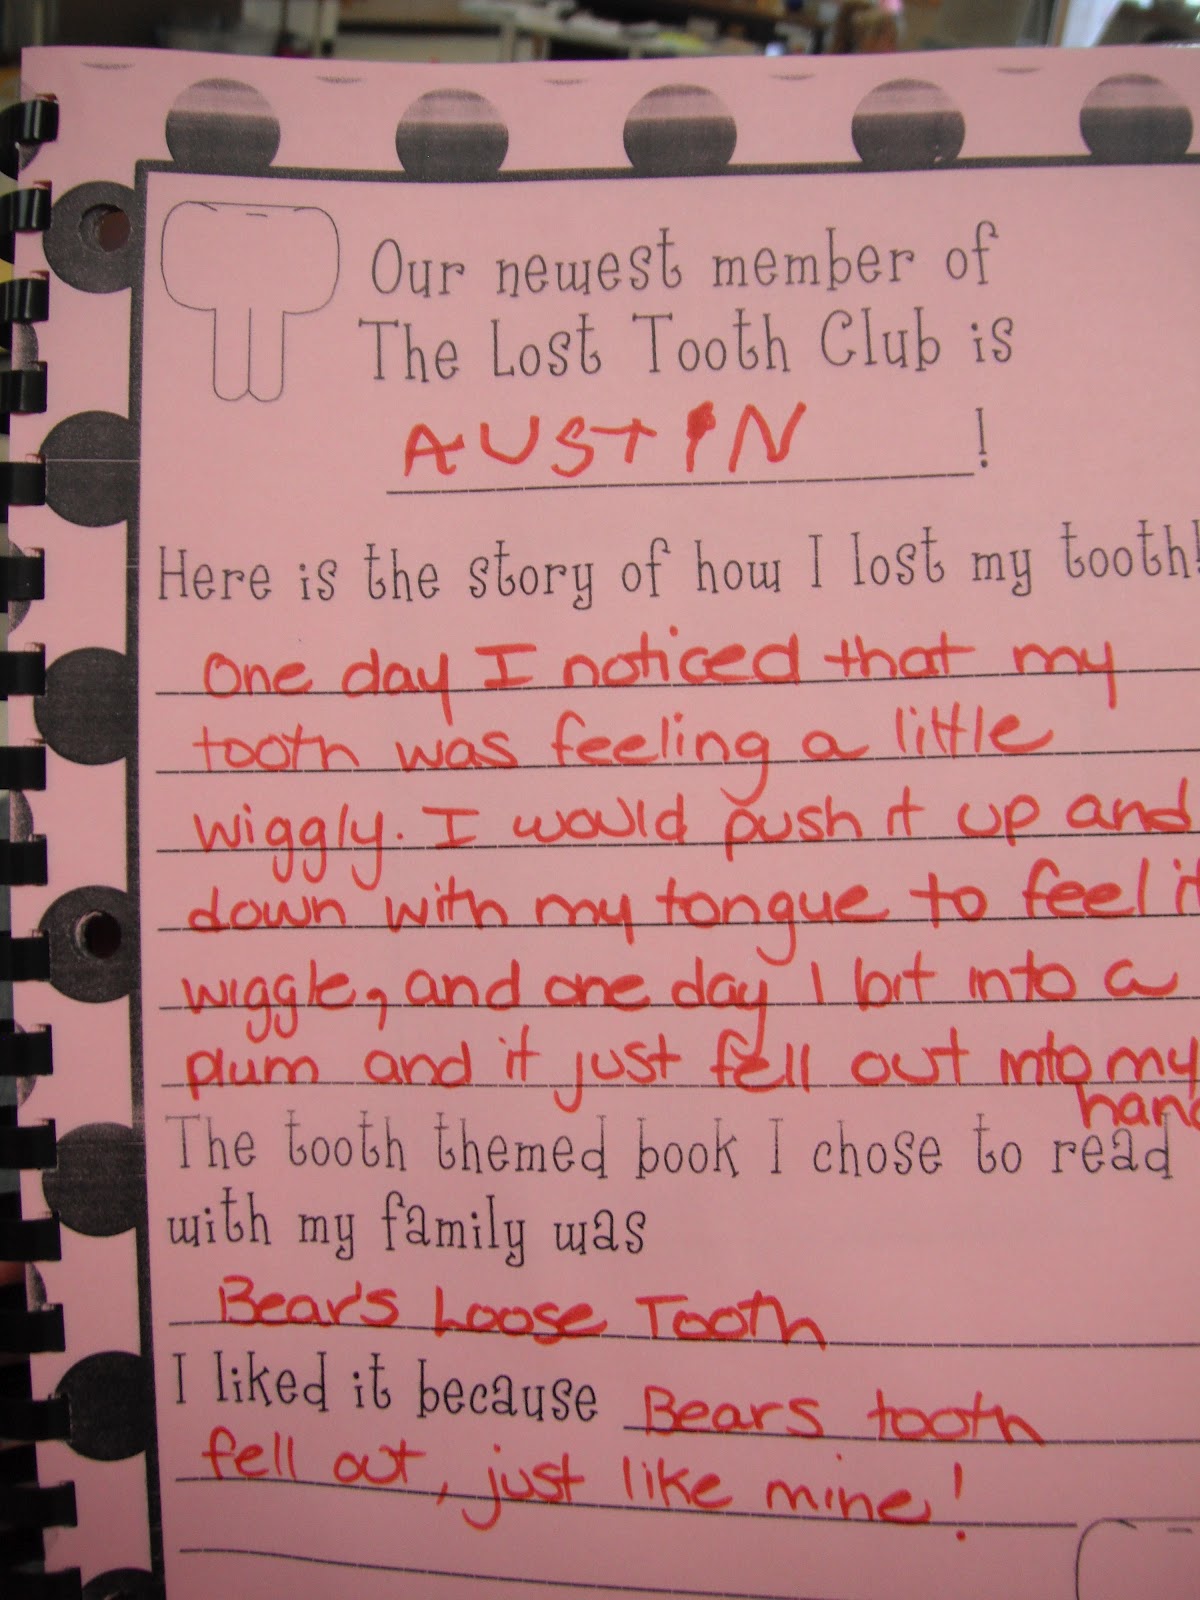 Our newest member of
The Lost Tooth Club is
AUSTIN !
Here is the story of how I lost my tooth!
One day I noticed that my
tooth was feeling a little
wiggly. I would push it up and
down with my tongue to feel it
wiggle, and one day I bit into a
plum and it just fell out into my
hand
The tooth themed book I chose to read
with my family was
Bear's Loose Tooth
I liked it because Bears tooth
fell out, just like mine!